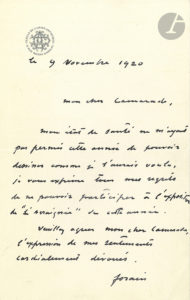 le 9 Novembre 1920
mon cher Camarade,
mon état de santé ne m'ayant
pas permis cette année de pouvoir
dessiner comme je l'aurais voulu,
je vous exprime tous mes regrets
de ne pouvoir participer à l'exposition
de "L'Araignée" de cette année.
Veuillez agréer mon cher Camarade,
l'expression de mes sentiments
cordialement dévoués.
forain